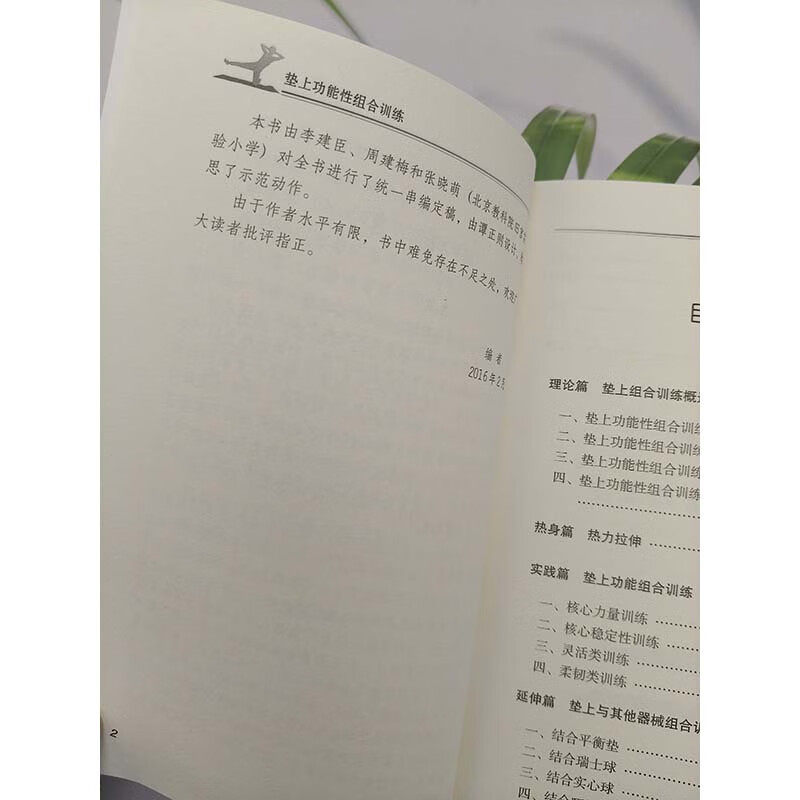 垫上功能性组合训练
本书由李建臣、周建梅和张晓萌(北京教科院
验小学)对全书进行了统一串编定稿,由谭正则设计、
思了示范动作。
由于作者水平有限,书中难免存在不足之处,欢迎
大读者批评指正。
编者
2016年2月
2
理论篇 垫上组合训练概
一、垫上功能性组合训练
二、垫上功能性组合训练
三、垫上功能性组合训练
四、垫上功能性组合训练
热身篇 热力拉伸
实践篇 垫上功能组合训练
一、核心力量训练
二、核心稳定性训练
三、灵活类训练
四、柔韧类训练
延伸篇 垫上与其他器械组合训
一、结合平衡垫
二、结合瑞士球
三、结合实心球
四、结合